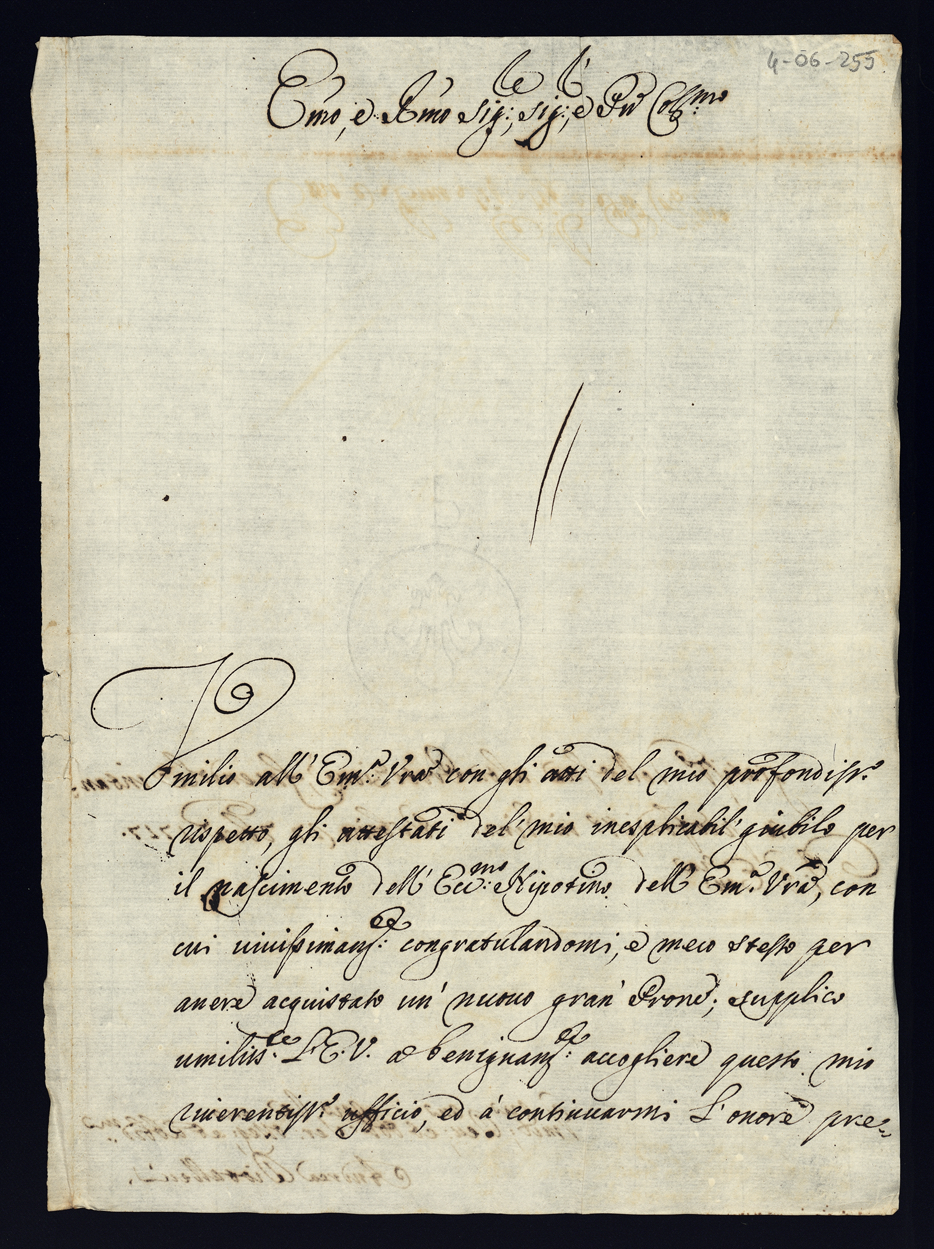 4-06-255
Emo, e Rmo Sig:re, Sig:, e Pñ Colmo
Umilio all' Em.a Vrã con gli atti del mio profondiss.o
rispetto, gli attestati del' mio inesplicabil' giubilo per
il nascimento dell' Ecc:mo Nipotino dell' Em.a Vrã, con
cui vivissimam:te congratulandomi, e meco stesso per
avere acquistato un' nuovo gran' Prone, supplico
umiliss:te L'E.V. a benignam:te accogliere questo mio
riverentiss.o ufficio, ed à continuarmi l'onore pre=